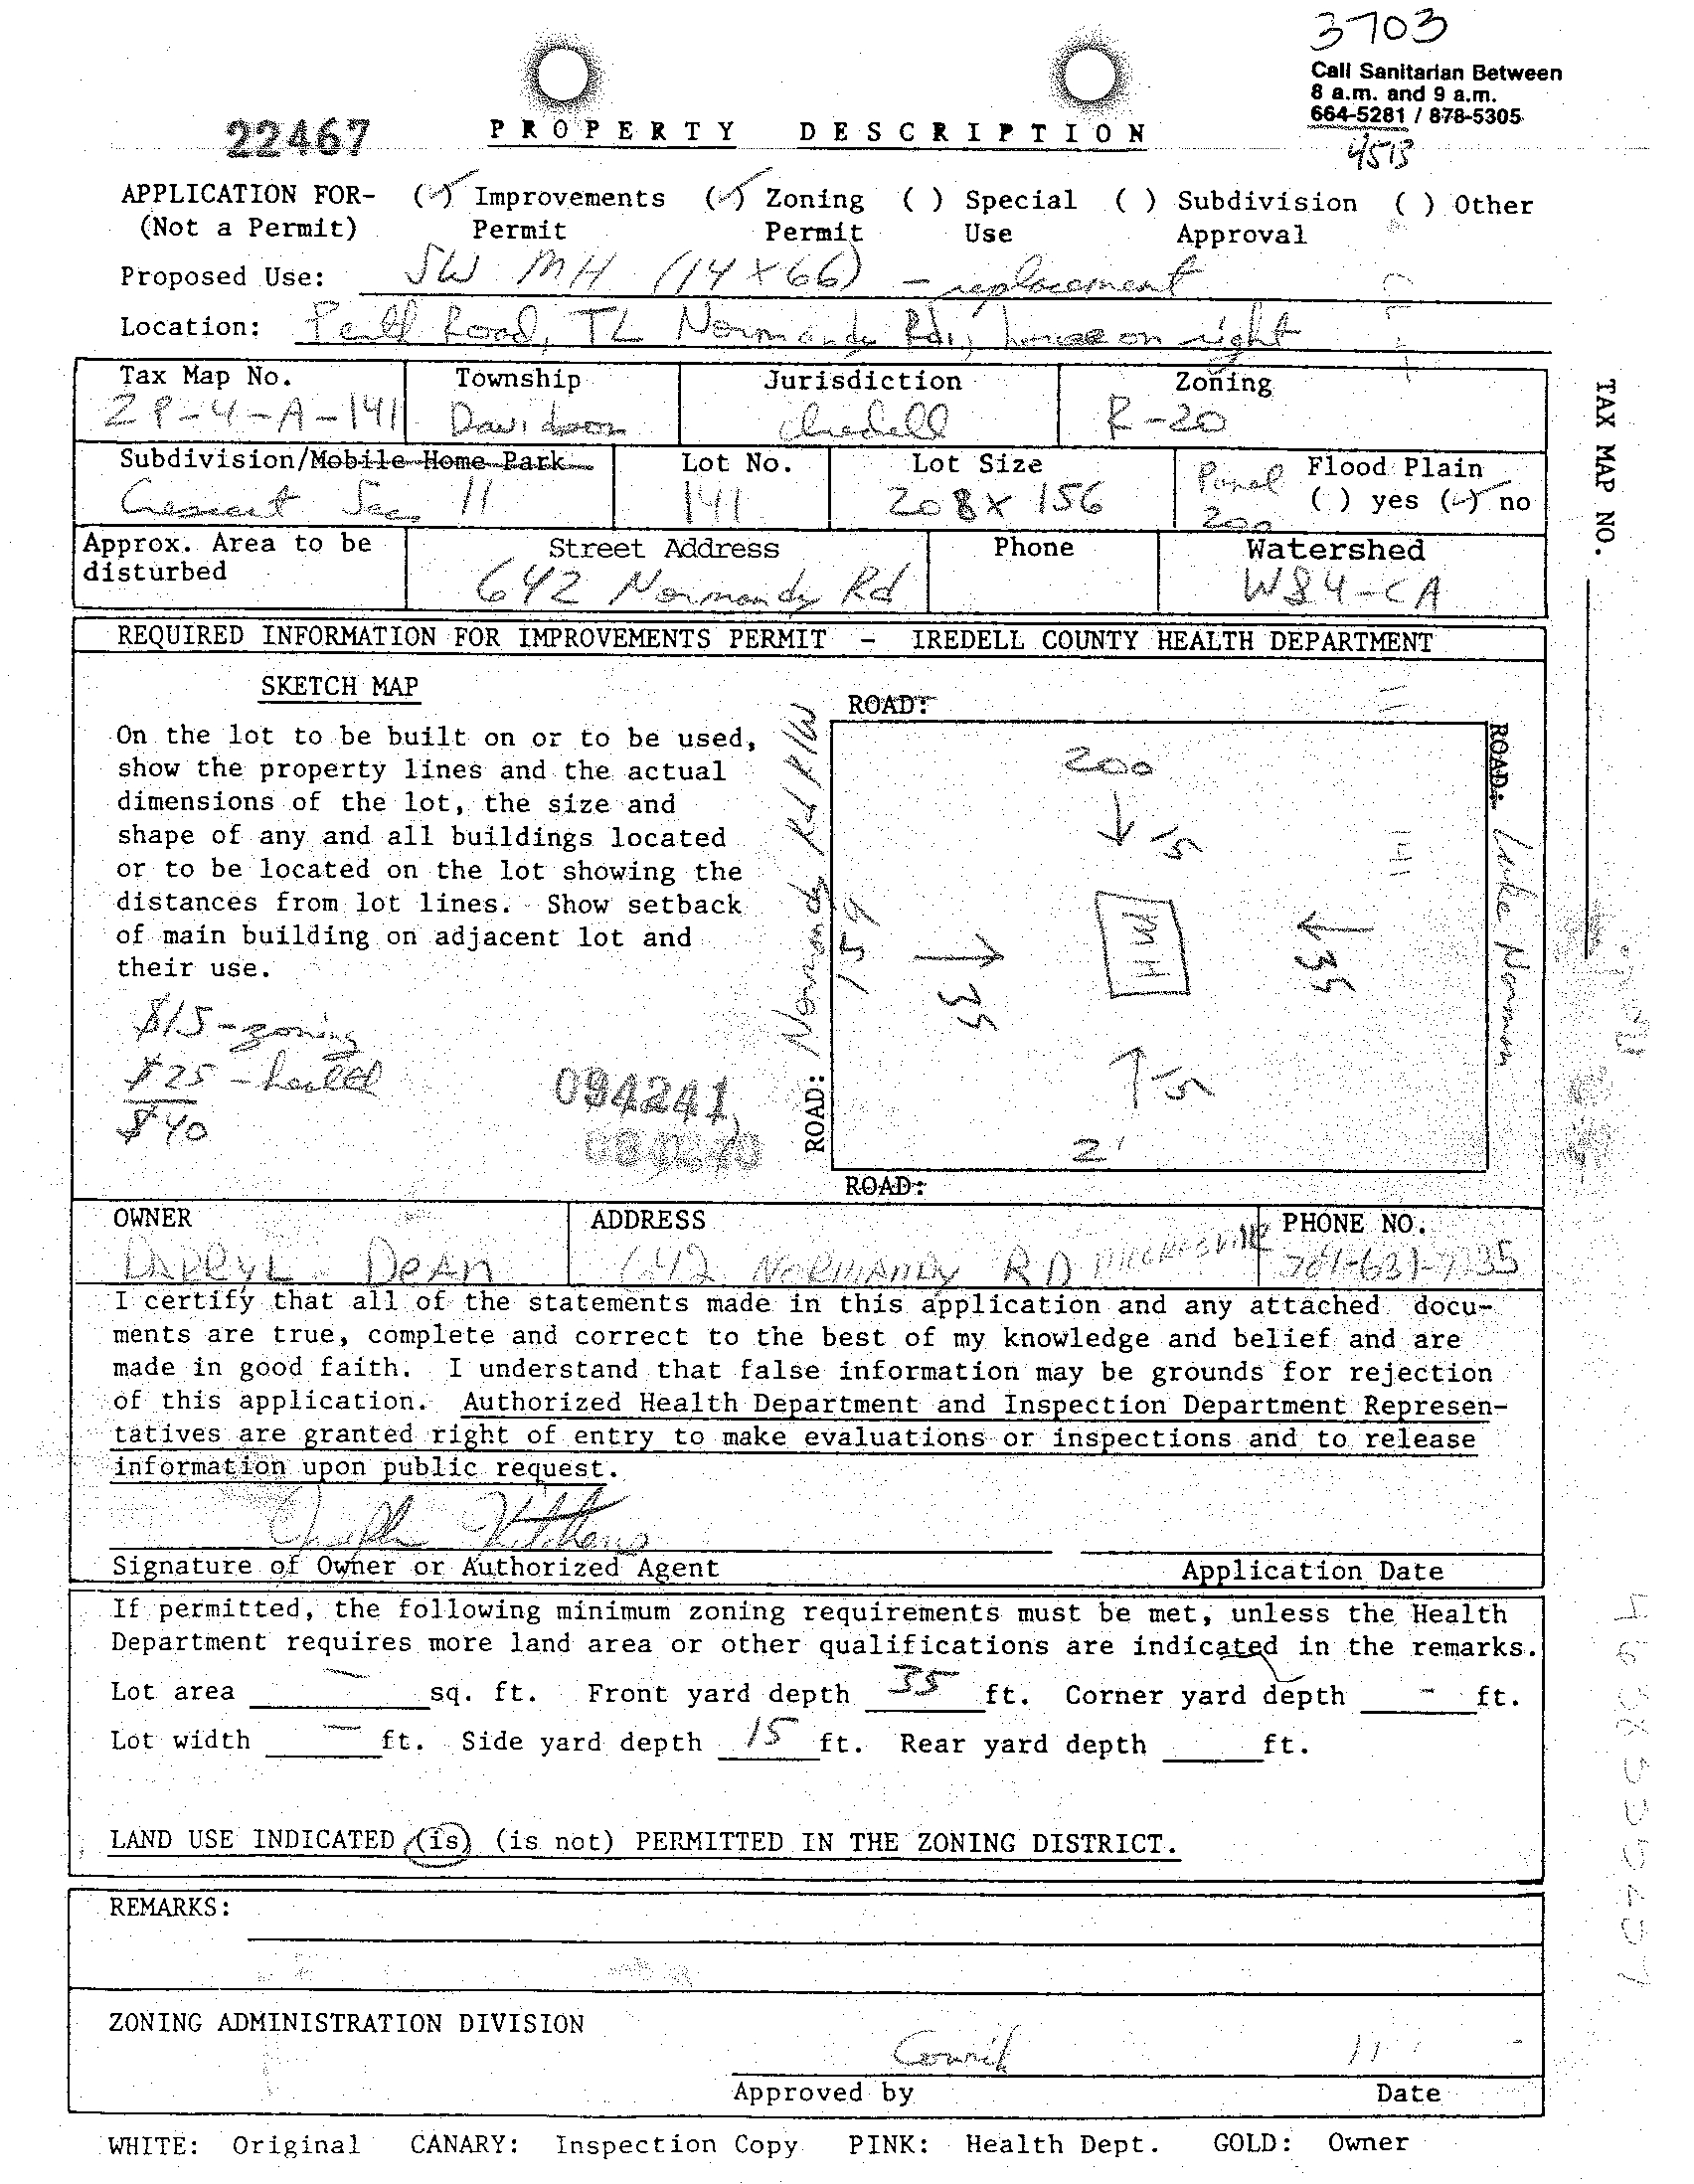 3703
Call Sanitarian Between
8 a.m. and 9 a.m.
664-5281 / 878-5305
4513
22467
PROPERTY DESCRIPTION
APPLICATION FOR- (✓) Improvements (✓) Zoning ( ) Special ( ) Subdivision ( ) Other
(Not a Permit) Permit Permit Use Approval
Proposed Use: SW MH (14 x 66) - replacement
Location: Road, TL Normandy Rd., house on right
Tax Map No. Township Jurisdiction Zoning
2P-4-A-141 Davidson Iredell R-20
Subdivision/Mobile Home Park Lot No. Lot Size Panel Flood Plain
Crescent Sec 11 141 208 x 156 200 ( ) yes (✓) no
Approx. Area to be Street Address Phone Watershed
disturbed 642 Normandy Rd WS4-CA
TAX MAP NO.
REQUIRED INFORMATION FOR IMPROVEMENTS PERMIT - IREDELL COUNTY HEALTH DEPARTMENT
SKETCH MAP
On the lot to be built on or to be used,
show the property lines and the actual
dimensions of the lot, the size and
shape of any and all buildings located
or to be located on the lot showing the
distances from lot lines. Show setback
of main building on adjacent lot and
their use.
$15-zoning
$25 - health
$40
094241
ROAD:
200
15
ROAD: Lake Norman
141
ROAD: Normandy Rd R/W
159
35
MH
35
15
2'
ROAD:
OWNER ADDRESS PHONE NO.
DARRYL DEAN 642 NORMANDY RD MOORESVILLE 704-631-7735
I certify that all of the statements made in this application and any attached docu-
ments are true, complete and correct to the best of my knowledge and belief and are
made in good faith. I understand that false information may be grounds for rejection
of this application. Authorized Health Department and Inspection Department Represen-
tatives are granted right of entry to make evaluations or inspections and to release
information upon public request.
Signature of Owner or Authorized Agent Application Date
If permitted, the following minimum zoning requirements must be met, unless the Health
Department requires more land area or other qualifications are indicated in the remarks.
Lot area - sq. ft. Front yard depth 35 ft. Corner yard depth - ft.
Lot width - ft. Side yard depth 15 ft. Rear yard depth ft.
LAND USE INDICATED (is) (is not) PERMITTED IN THE ZONING DISTRICT.
REMARKS:
ZONING ADMINISTRATION DIVISION
Approved by Date
WHITE: Original CANARY: Inspection Copy PINK: Health Dept. GOLD: Owner